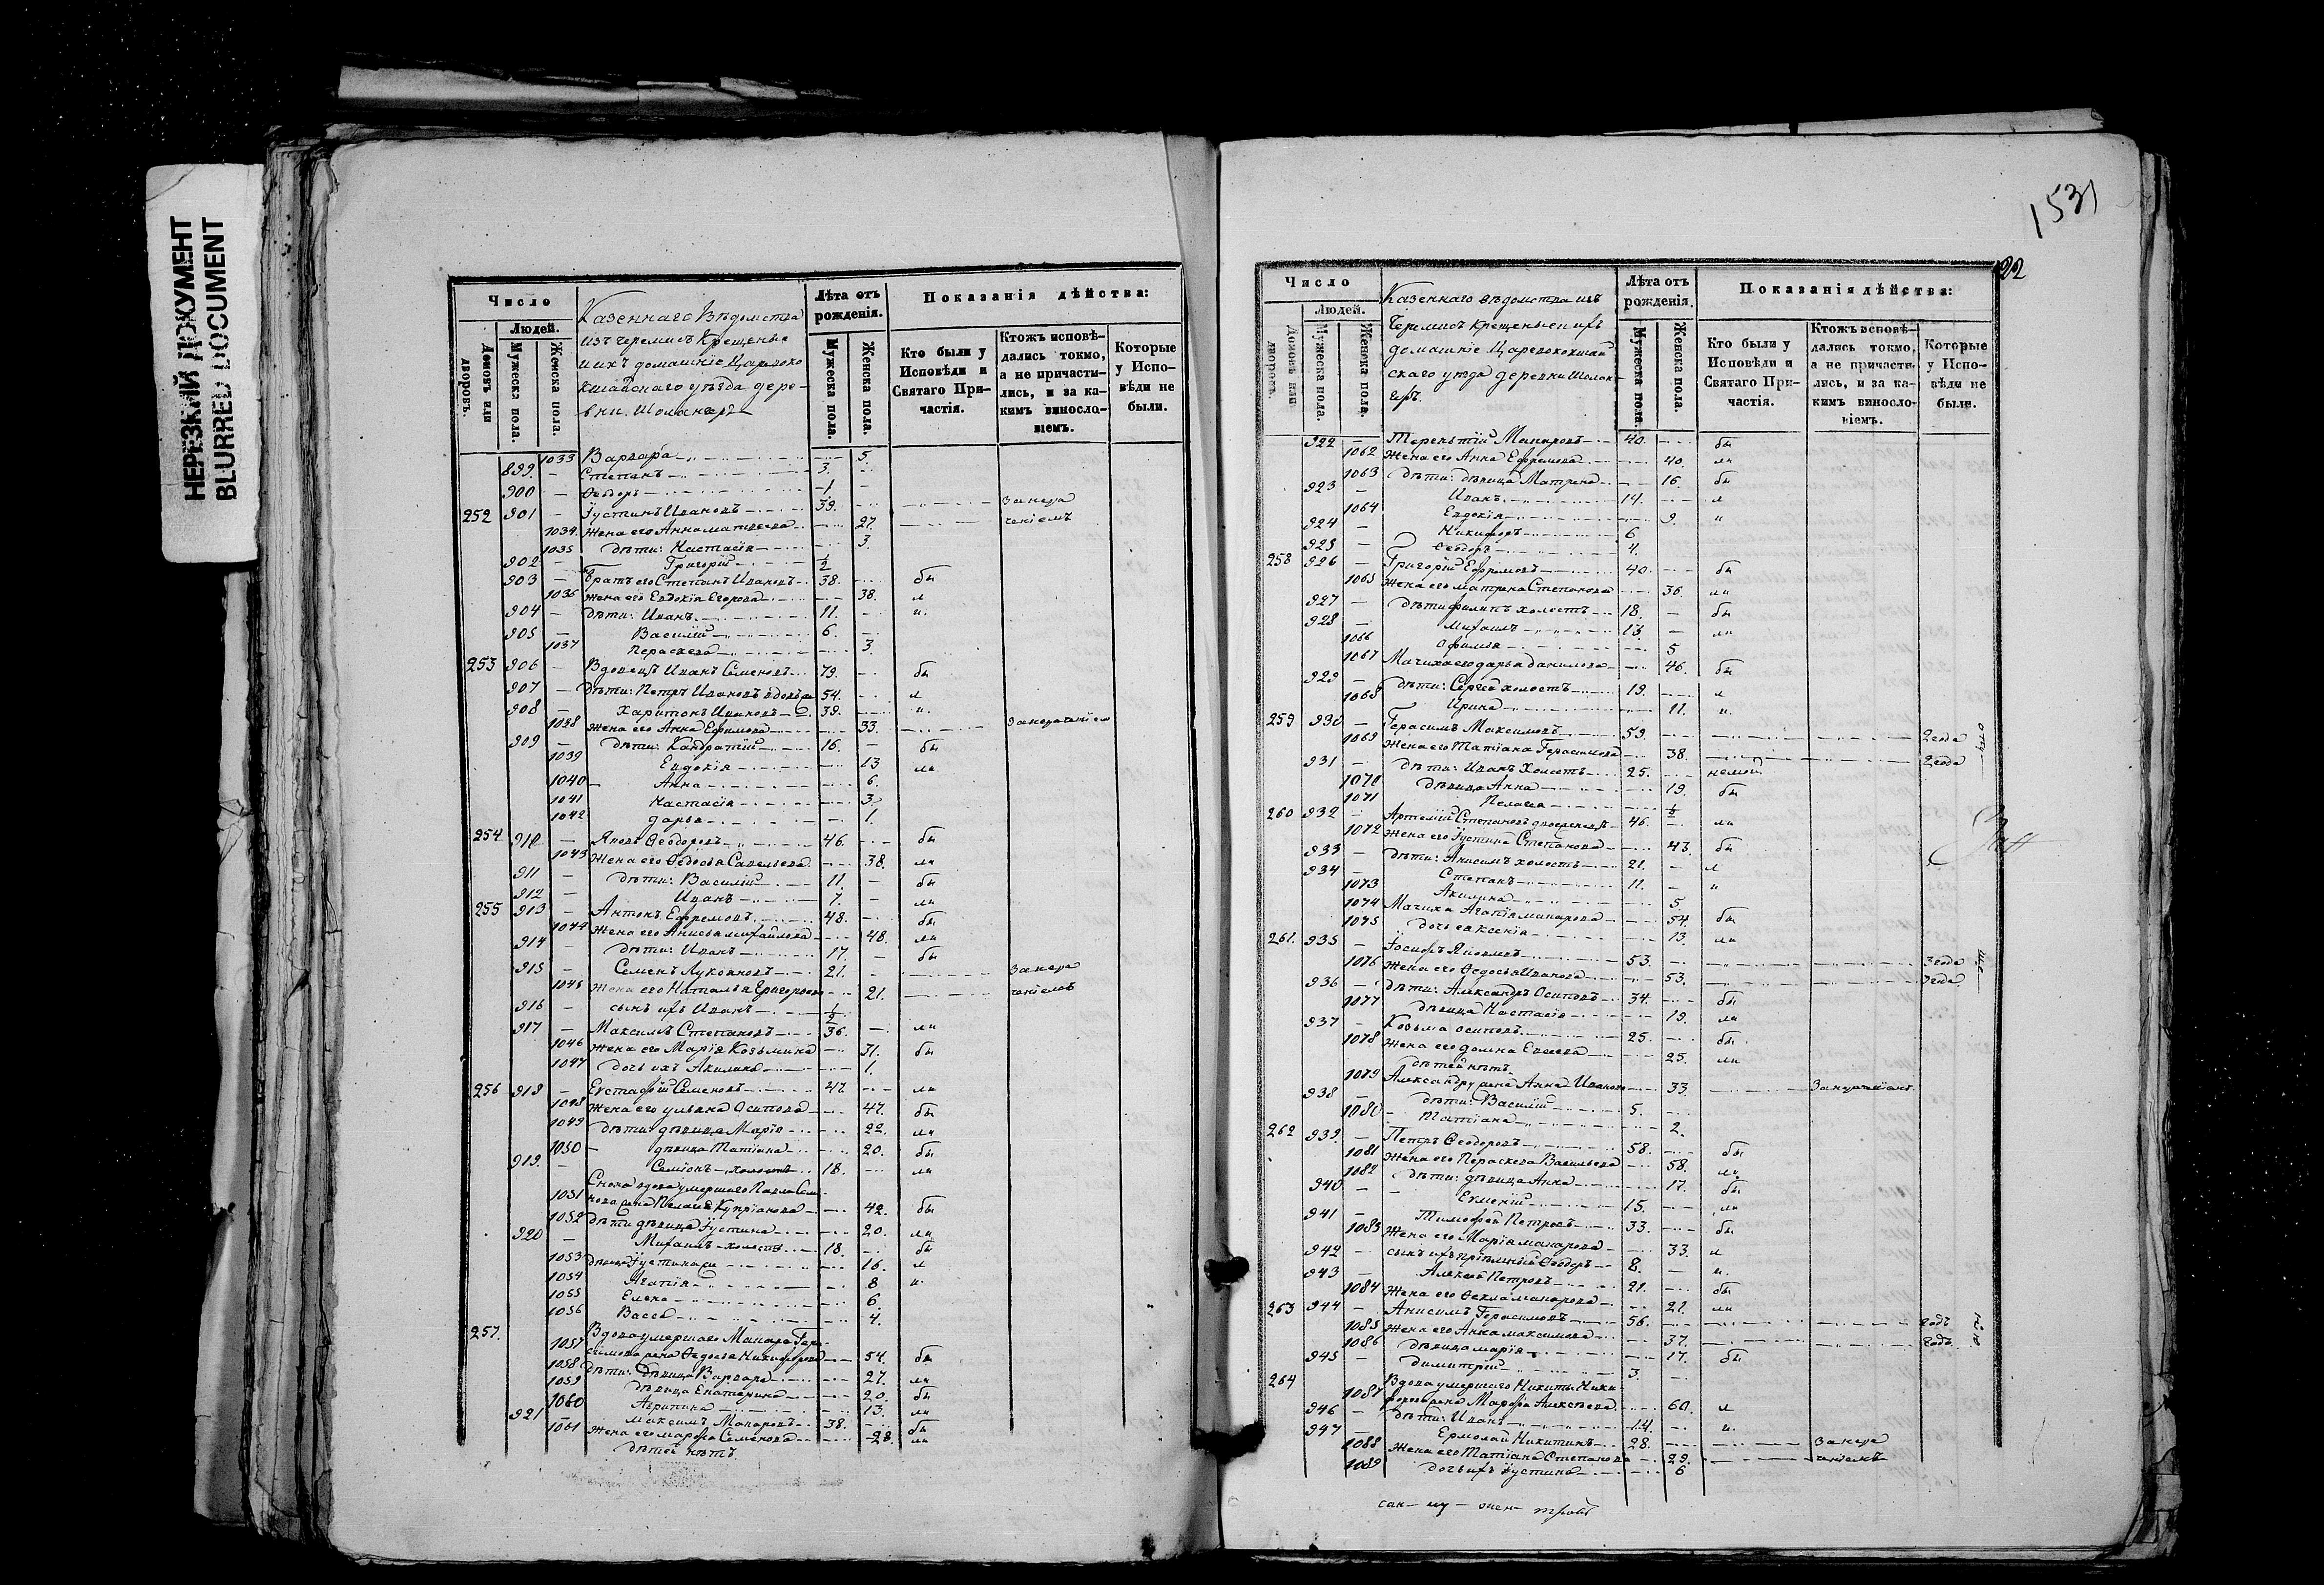 НЕРЕЗКИЙ ДОКУМЕНТ
BLURRED DOCUMENT
Число
Людей.
Домовъ или дворовъ.
Мужеска пола.
Женска пола.
Казеннаго Ведомства
изъ черемисъ Крещеные
и ихъ домашніе Царевоко
кшайскаго уезда дере-
вни Шоланеръ
Лѣта отъ рожденія.
Мужеска пола.
Женска пола.
Показанія дѣйства:
Кто были у Исповѣди и Святаго При-частія.
Ктожъ исповѣ-дались токмо, а не причасти-лись, и за ка-кимъ винословіемъ.
Которые у Испо-вѣди не были.
1033 Варвара 5.
899. Степанъ 3.
900 Ѳеодоръ 1
252 901 Іустинъ Ивановъ 39. за нера
1034. Жена его Анна Матвеева 27. ченіемъ
1035 дѣти: Настасія 3.
902 Григорій 1/2
903 Братъ его Степанъ Ивановъ 38. бы
1036 Жена его Евдокія Егорова 38. л
904 дѣти: Иванъ 11. и.
905 Василій 6.
1037 Параскева 3.
253 906 Вдовецъ Иванъ Семеновъ 79. бы
907 Дѣти: Петръ Ивановъ вдовъ 54. л
908 Харитонъ Ивановъ 39. и.
1038 Жена его Анна Ефимова 33. за нераченіем
909 дѣти: Кандратій 16. бы
1039 Евдокія 13 ли
1040 Анна 6.
1041 Настасія 3.
1042 Дарья 1.
254 910 Яковъ Ѳеодоровъ 46. бы
1043 Жена его Ѳедосья Савельева 38. ли
911 дѣти: Василій 11. бы
912 Иванъ 7. ли
255 913 Антонъ Ефремовъ 48. бы
1044 Жена его Анисья Михайлова 48. ли
914 дѣти: Иванъ 17. бы
915 Семенъ Лукояновъ 21. за нера
1045 Жена его Наталья Григорьева 21. ченіемъ
916 сынъ ихъ Иванъ 1/2
917 Максимъ Степановъ 36. ли
1046 Жена его Марія Козьмина 31. бы
1047 дочь ихъ Акилина 1.
256 918 Евстафій Семеновъ 47. ли
1048 Жена его Ульяна Осипова 47. бы
1049 Дѣти: дѣвица Марія 22. ли
1050 дѣвица Татіана 20. бы
919. Семіонъ холостъ 18. ли
Сноха вдова умершаго Павла Сем
1051 нова жена Пелагія Купріанова 42. бы
1052 Дѣти дѣвица Іустина 20. ли
920 Михаилъ холостъ 18. бы
1053 Дѣвица Іустина 16. л
1054 Агапія 8 и.
1055 Елена 6.
1056 Васса 4.
257. Вдова умершаго Макара Гера
1057 симова жена Ѳедосья Никифорова 54. бы
1058 Дѣти: Дѣвица Варвара 27. ли
1059 дѣвица Екатерина 20. бы
1060 Агрипина 13. ли
921 Максимъ Макаровъ 38. бы
1061 Жена его Марфа Семенова 28. ли
дѣтей нѣтъ.
1531
22
Число
Людей.
Домовъ или дворовъ.
Мужеска пола.
Женска пола.
Казеннаго вѣдомства изъ
Черемисъ Крещеные и ихъ
домашніе Царевококшай
скаго уезда деревни Шолан
еръ.
Лѣта отъ рожденія.
Мужеска пола.
Женска пола.
Показанія дѣйства:
Кто были у Исповѣди и Святаго При-частія.
Ктожъ исповѣ-дались токмо, а не причасти-лись, и за ка-кимъ винословіемъ.
Которые у Испо-вѣди не были.
922 Терентій Макаровъ 40. бы
1062 Жена его Анна Ефремова 40. ли
1063 Дѣти: дѣвица Матрена 16 бы
923 Иванъ 14. л
1064 Евдокія 9. и
924 Никифоръ 6
925 Ѳеодоръ 4.
258 926 Григорій Ефремовъ 40. бы
1065 Жена его Матрена Степанова 36. ли
927 Дѣти Филипъ холостъ 18. бы
928 Михаилъ 13. ли
1066 Офимья 5
1067 Мачиха его Дарья Данилова 46. бы
929 дѣти: Сергей холостъ 19. л
1068 Ирина 11. и.
259 930 Герасимъ Максимовъ 59. 2 года
1069 Жена его Татіана Герасимова 38. 2 года
931 Дѣти: Иванъ Холостъ 25. немой
1070 Дѣвица Анна 19. бы
1071 Пелагея 1/2
260 932 Артемій Степановъ двоеженецъ 46. ли
1072 Жена его Іустина Степанова 43. бы
933 дѣти: Анисимъ холостъ 21. л
934 Степанъ 11. и
1073 Акилина 5.
1074 Мачиха Агапія Макарова 54. бы
1075 дочь ея Ксенія 13. ли
261. 935 Іосифъ Яковлевъ 53. 3 года
1076 Жена его Ѳедосья Иванова 53. 3 года
936 Дѣти: Александръ Осиповъ 34. бы
1077 дѣвица Настасія 19. ли
937 Козьма Осиповъ 25. бы
1078 Жена его Домна Евсеева 25. ли
дѣтей нѣтъ.
1079 Александру жена Анна Иванова 33. За нераченіемъ
938 дѣти: Василій 5.
1080 Татіана 2.
262 939. Петръ Ѳеодоровъ 58. бы
1081 Жена его Параскева Васильева 58. ли
1082 Дѣти: дѣвица Анна 17. бы
940 Евгеній 15. ли
941 Тимофей Петровъ 33. бы
1083 Жена его Марія Макарова 33. л
942 сынъ ихъ пріемный Ѳеодоръ 8. и.
943 Алексей Петровъ 21. бы
1084 Жена его Ѳекла Макарова 21. ли
263 944 Анисимъ Герасимовъ 56. годъ
1085 Жена его Анна Максимова 37. годъ
1086 Дѣвица Марія 17. бы
945 Димитрій 3.
264 Вдова умершаго Никиты Ники
1087 форова жена Марфа Алексѣева 60. л
946 дѣти: Иванъ 14. и.
947 Ермолай Никитинъ 28. за нера
1088 Жена его Татіана Степанова 29. ченіемъ
1089 дочь ихъ Іустина 6